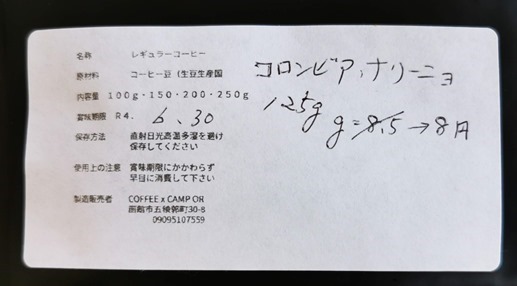 名称 レギュラーコーヒー
原材料 コーヒー豆（生豆生産国 コロンビア,ナリーニョ
内容量 100g・150・200・250g 125g
賞味期限 R4. 6.30 g=8.5→8円
保存方法 直射日光高温多湿を避け
保存してください
使用上の注意 賞味期限にかかわらず
早目に消費して下さい
製造販売者 COFFEE x CAMP OR
函館市五稜郭町30-8
09095107559